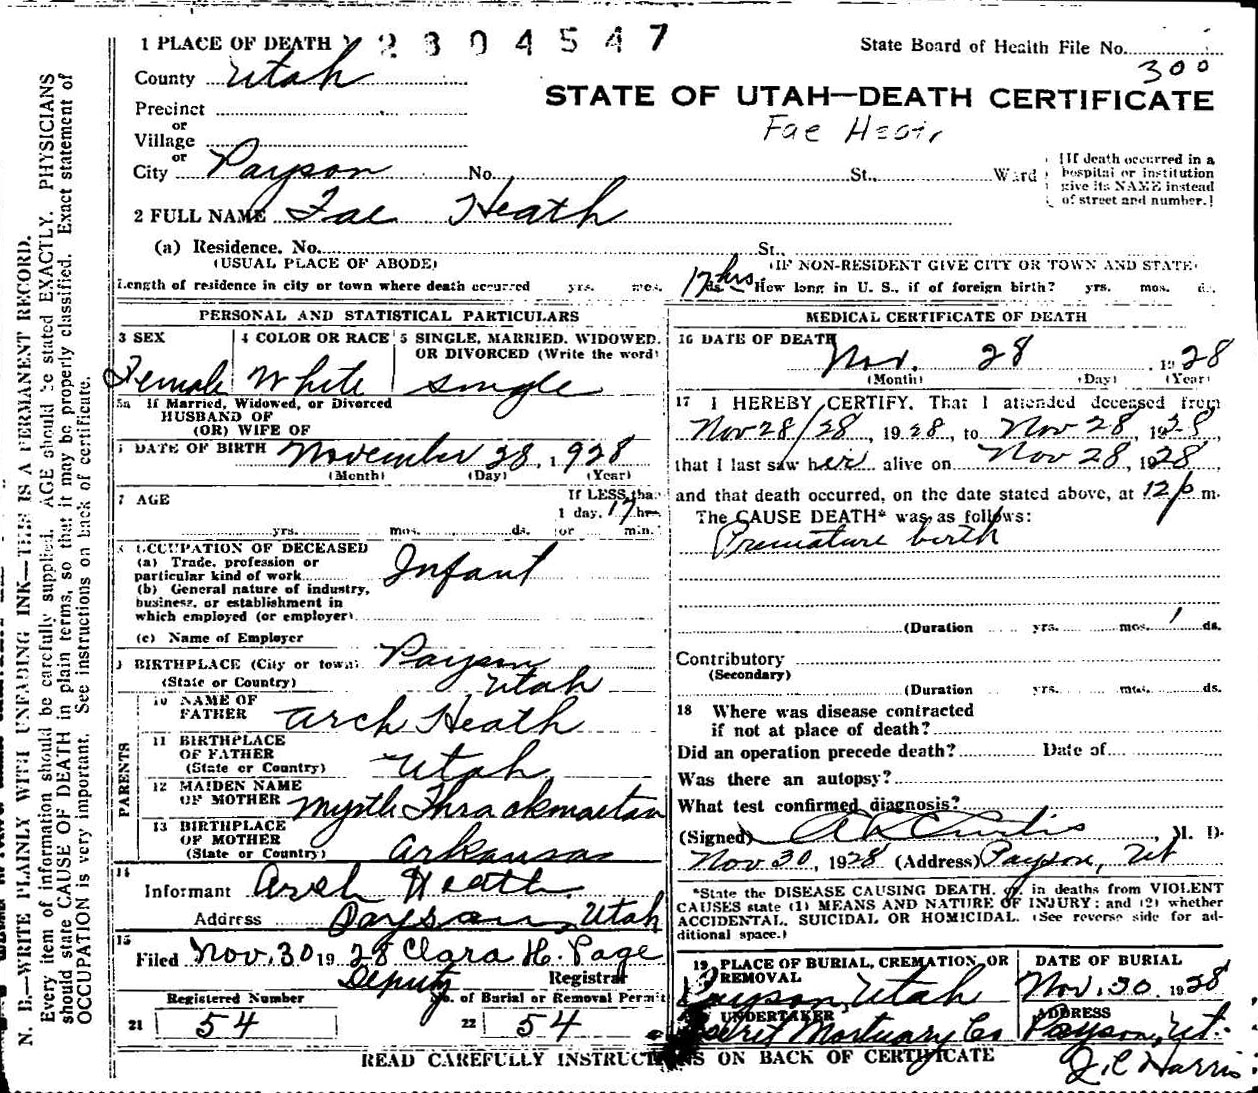 1 PLACE OF DEATH 2304547 State Board of Health File No.
300
County Utah
STATE OF UTAH—DEATH CERTIFICATE
Precinct
or
Village
Fae
or
City Payson No. St., Ward
(If death occurred in a hospital or institution give its NAME instead of street and number.)
2 FULL NAME Fae Heath
(a) Residence. No. St.,
(USUAL PLACE OF ABODE) (IF NON-RESIDENT GIVE CITY OR TOWN AND STATE)
Length of residence in city or town where death occurred yrs. mos. 17 hrs ds. How long in U. S., if of foreign birth? yrs. mos. ds.
PERSONAL AND STATISTICAL PARTICULARS
3 SEX Female
4 COLOR OR RACE White
5 SINGLE, MARRIED, WIDOWED, OR DIVORCED (Write the word) Single
5a If Married, Widowed, or Divorced
HUSBAND OF
(OR) WIFE OF
DATE OF BIRTH November 28, 1928
(Month) (Day) (Year)
7 AGE If LESS than
1 day, 17 hrs.
yrs. mos. ds. or min.
8 OCCUPATION OF DECEASED
(a) Trade, profession or
particular kind of work Infant
(b) General nature of industry,
business, or establishment in
which employed (or employer)
(c) Name of Employer
9 BIRTHPLACE (City or town) Payson
(State or Country) Utah
PARENTS
10 NAME OF
FATHER Arch Heath
11 BIRTHPLACE
OF FATHER
(State or Country) Utah
12 MAIDEN NAME
OF MOTHER Myrtle Thrackmorton
13 BIRTHPLACE
OF MOTHER
(State or Country) Arkansas
14
Informant Arch Heath
Address Payson, Utah
15
Filed Nov. 30 1928 Clara H. Page
Deputy Registrar
Registered Number No. of Burial or Removal Permit
21 54 22 54
MEDICAL CERTIFICATE OF DEATH
16 DATE OF DEATH
Nov. 28, 1928
(Month) (Day) (Year)
17 I HEREBY CERTIFY, That I attended deceased from
Nov 28/28, 1928, to Nov 28, 1928,
that I last saw her alive on Nov 28, 1928
and that death occurred, on the date stated above, at 12 p m.
The CAUSE DEATH* was as follows:
Premature birth
(Duration yrs. mos. 1 ds.
Contributory
(Secondary)
(Duration yrs. mos. ds.
18 Where was disease contracted
if not at place of death?
Did an operation precede death? Date of
Was there an autopsy?
What test confirmed diagnosis?
(Signed) Curtis, M. D.
Nov 30, 1928 (Address) Payson, Ut
*State the DISEASE CAUSING DEATH, or, in deaths from VIOLENT
CAUSES state (1) MEANS AND NATURE OF INJURY; and (2) whether
ACCIDENTAL, SUICIDAL OR HOMICIDAL. (See reverse side for ad-
ditional space.)
19 PLACE OF BURIAL, CREMATION, OR
REMOVAL
Payson, Utah
DATE OF BURIAL
Nov. 30, 1928
UNDERTAKER
Mortuary Co
ADDRESS
Payson, Ut.
J. C. Harris
READ CAREFULLY INSTRUCTIONS ON BACK OF CERTIFICATE
N. B.—WRITE PLAINLY WITH UNFADING INK—THIS IS A PERMANENT RECORD.
Every item of information should be carefully supplied. AGE should be stated EXACTLY. PHYSICIANS
should state CAUSE OF DEATH in plain terms, so that it may be properly classified. Exact statement of
OCCUPATION is very important. See instructions on back of certificate.